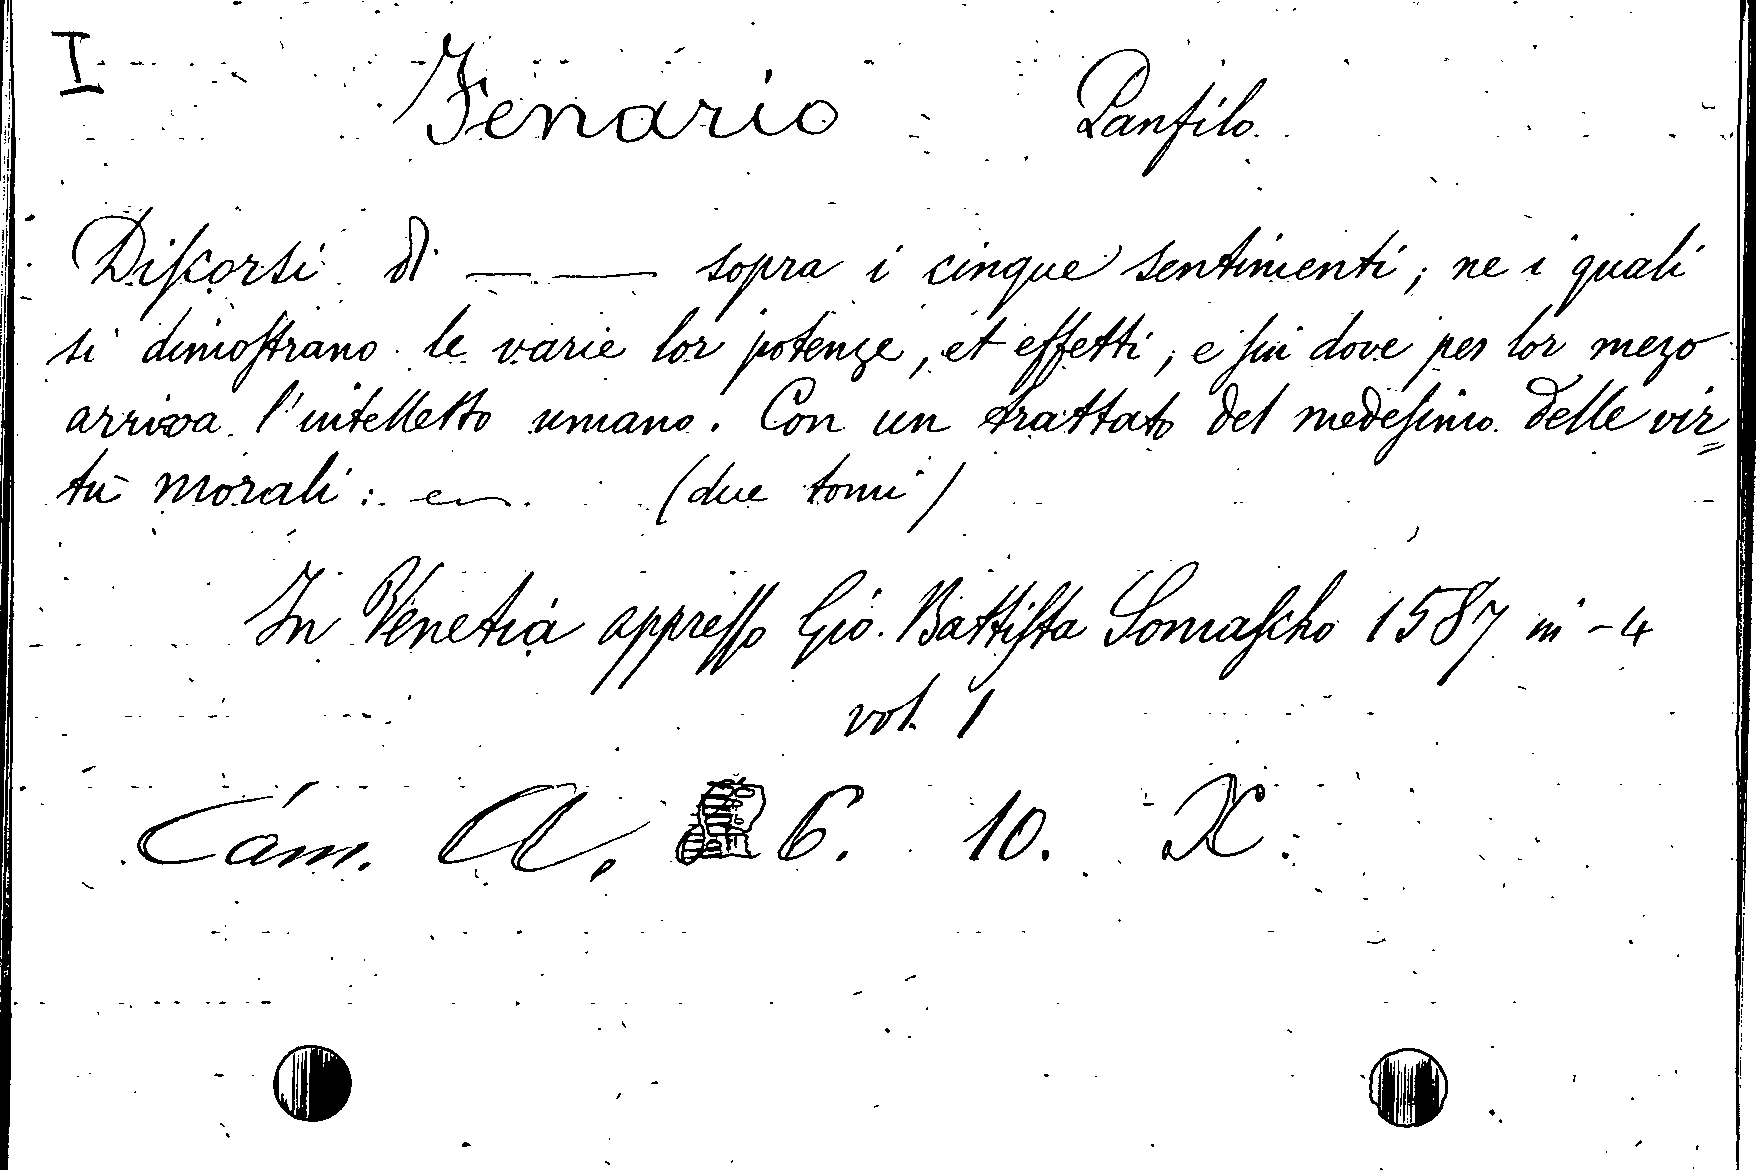 I
Fenario Panfilo.
Diſcorsi di — — sopra i cinque sentimenti, ne i quali
si dimoſtrano le varie lor potenze, et effetti, e ſin dove per lor mezo
arriva l'intelletto umano. Con un trattato del medeſimo delle vir=
tù morali:. (due tomi)
In Venetia appreſſo Gio. Battiſta Somaſcho 1587 in -4
vol. 1
Cam. A. 6. 10. X.